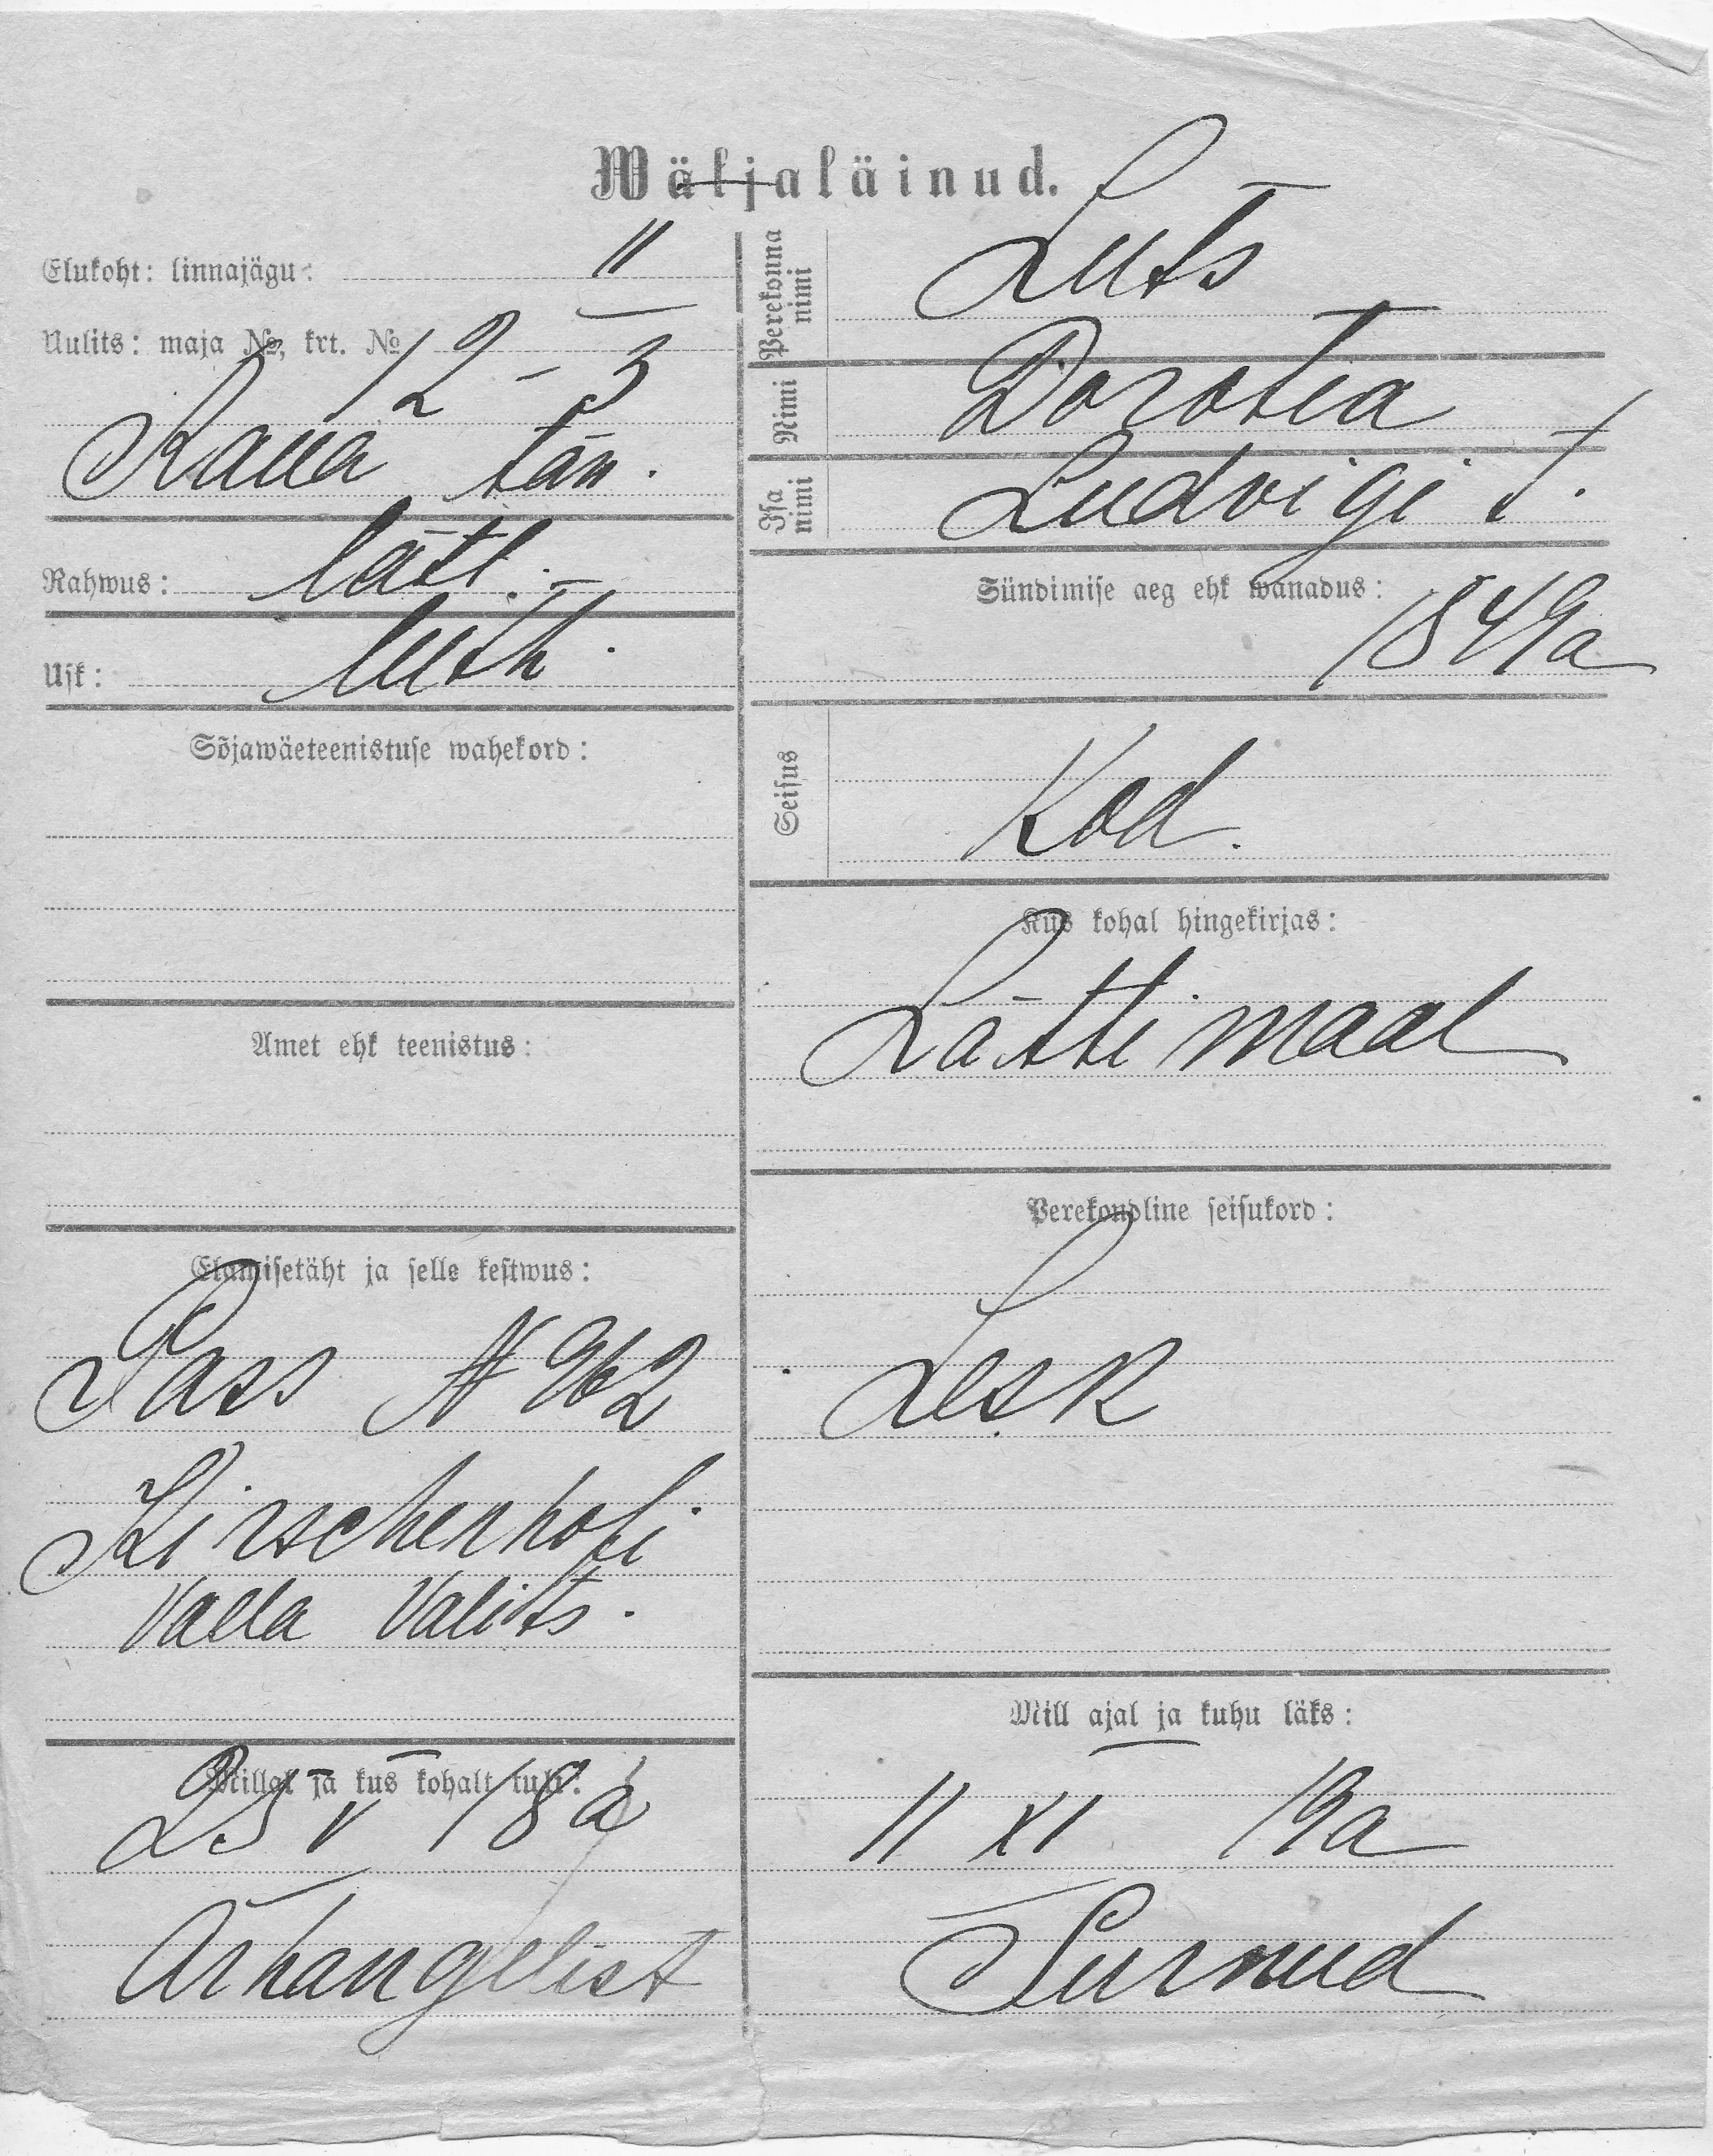 Wäljaläinud.
Elukoht: linnajagu: II
Uulits: maja №, krt. № 12-3
Raua tän.
Rahwus: lätl.
Usk: luth.
Sõjawäeteenistuse wahekord:
Amet ehk teenistus:
Elamisetäht ja selle kestwus:
Pass N 962
Kirschenhofi
Valla Valits.
Millal ja kus kohalt tuli:
25 V 18a
Arhangelist
Perekonna nimi Luts
Nimi Dorotea
Isa nimi Ludvigi t.
Sündimise aeg ehk wanadus:
1849a
Seisus Kod.
Kus kohal hingekirjas:
Lätti maal
Perekondline seisukord:
Lesk
Mill ajal ja kuhu läks:
11 XI 19a
Surnud